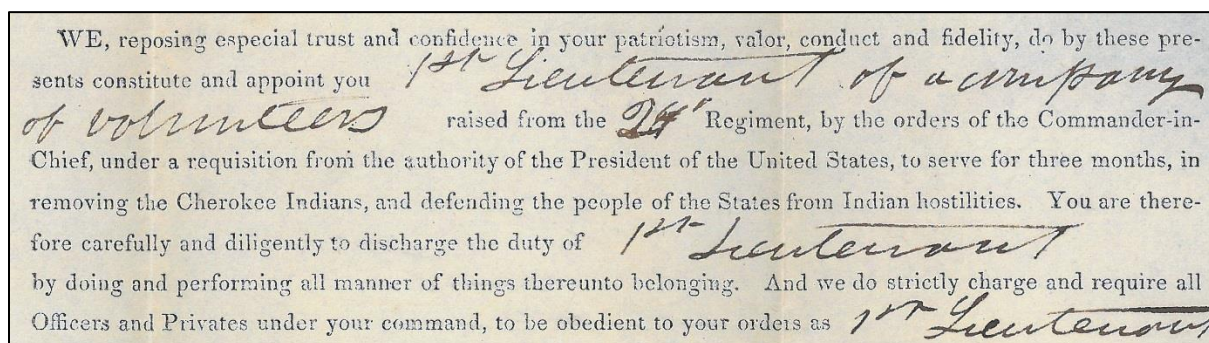 WE, reposing especial trust and confidence in your patriotism, valor, conduct and fidelity, do by these pre-
sents constitute and appoint you 1st Lieutenant of a company
of volunteers raised from the Regiment, by the orders of the Commander-in-
Chief, under a requisition from the authority of the President of the United States, to serve for three months, in
removing the Cherokee Indians, and defending the people of the States from Indian hostilities. You are there-
fore carefully and diligently to discharge the duty of 1st Lieutenant
by doing and performing all manner of things thereunto belonging. And we do strictly charge and require all
Officers and Privates under your command, to be obedient to your orders as 1st Lieutenant